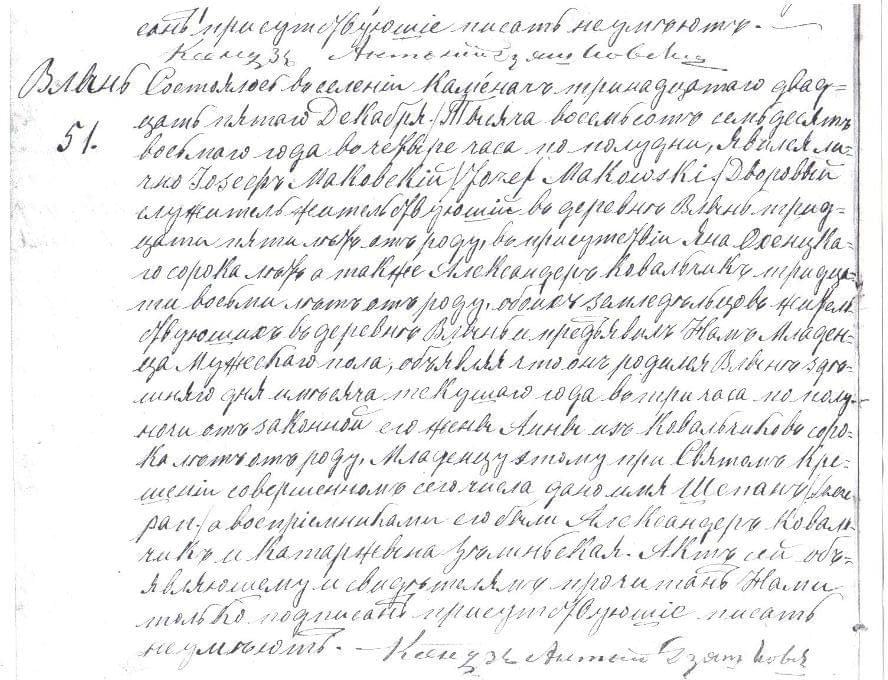 санъ присутствующіе писать неумѣютъ. —
Ксендзъ Антоній
Влынь
51.
Состоялось въ селеніи Каменачъ тринадцатаго двад-
цать пятаго Декабря / Тысяча восемьсотъ семьдесятъ
восьмаго года въ четыре часа по полудни, явился ли-
чно Іосефъ Маковскій /Jozef Makowski/ Дворовый
служитель жительствующій въ деревнѣ Влынь трид-
цати пяти лѣтъ отъ роду, въ присутствіи Яна
го сорока лѣтъ а также Александеръ Ковальчикъ тридца-
ти восьми лѣтъ отъ роду, обоихъ земледѣльцовъ житель-
ствующихъ въ деревнѣ Влынь и предъявилъ Намъ Младен-
ца Мужескаго пола, объявляя что онъ родился Влынѣ здѣ-
шняго дня и мѣсяча текущаго года въ три часа по полу-
ночи отъ законной его жены Анны изъ Ковальчиковъ соро-
ка лѣтъ отъ роду, Младенцу этому при Святомъ Кре-
щеніи совершенномъ сего числа дано имя Щепанъ /Szcze
pan/ а воспріемниками его были Александеръ Коваль-
чикъ и Катаржина. Актъ сей объ-
являющему и свидѣтелямъ прочитанъ Нами
только подписанъ присутствующіе писать
неумѣютъ. — Ксендзъ Антоній